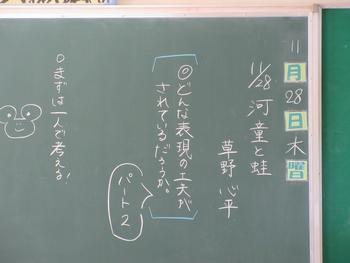 11月28日木曜
11/28 河童と蛙
草野心平
◎どんな表現の工夫が
されているだろうか。
パート2
○まずは一人で考える!